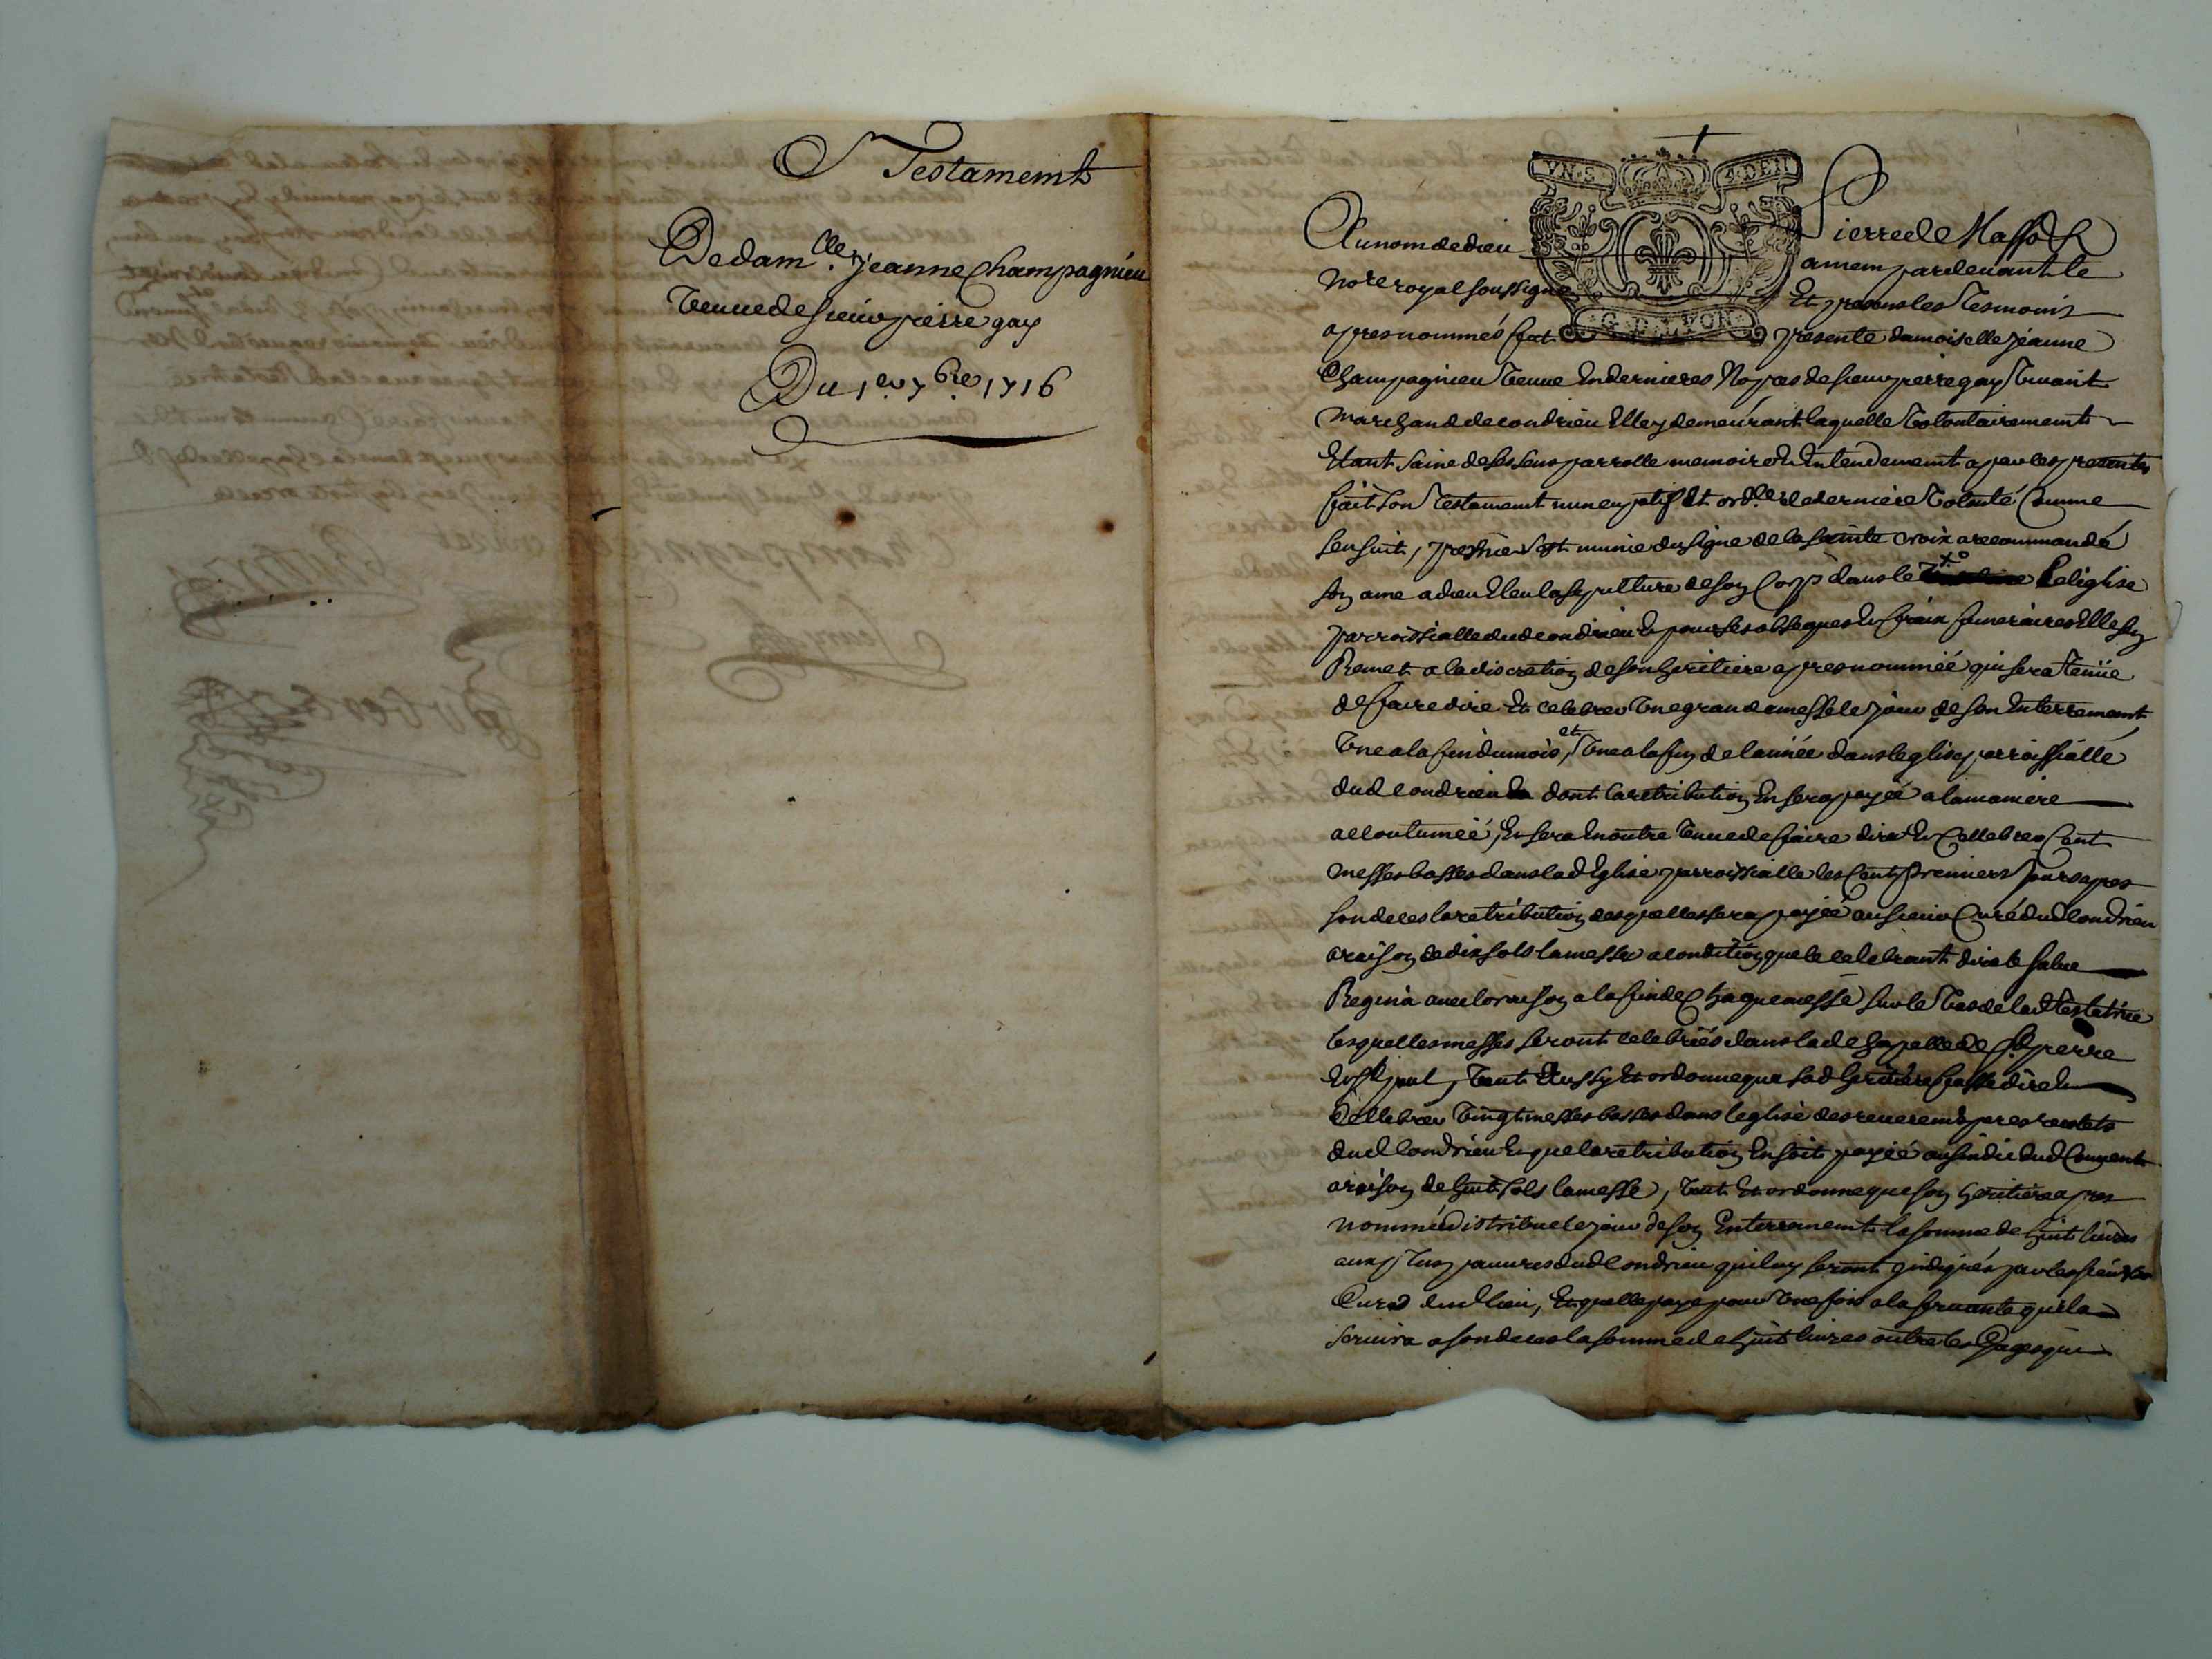 Testament
De dam.lle Jeanne Champagnieu
veuve de sieur pierre gay
Du 1er. 7bre. 1716
VN.S. 4.DEN
Pierre de Masso
Au nom de dieu amen pardevant le
Nore royal soussigné Et presens les tesmoins
apres nommés fut presente damoiselle Jeanne
G. D. LYON
Champagnieu veuve En dernieres Nopces de sieur pierre gay vivant
marchand de condrieu Elle y demeurant laquelle volontairement
Etant saine de ses sens parrolle memoire Et Entendement a par les presentes
fait son testament nuncupatif Et ordce de derniere volonté Comme
sensuit, premier sest munie du signe de la sainte croix a recommandé
son ame a dieu Eleu la sepulture de son Corps dans le xo Leglise
parroissialle dud condrieu Et pour ses obseques Et frais funeraires Elle sen
Remet a la discretion de son heritiere apres nommée qui sera tenüe
de faire dire Et celebrer vne grande messe le jour de son Enterrement
vne a la fin du mois, et vne a la fin de lannée dans leglise parroissialle
dud condrieu dont la retribution En sera payée a la maniere
accoutumée, Et sera En outre tenue de faire dire Et Cellebrer Cent
messes basses dans lad Eglise parroissialle les Cent premiers jours apres
son deces la retribution desquelles sera payée au sieur Curé dud Condrieu
a raison de dix sols la messe a condition que le celebrant dira le salve
Regina avec loraison a la fin de Chaque messe sur le vas de lad testatrice
lesquelles messes seront celebrées dans lad chapelle de st pierre
Et st paul, veut Aussy Et ordonne que sad heritiere fasse dire Et
Cellebrer vingt messes basses dans leglise des reverends peres recolets
dud Condrieu Et que la retribution En soit payée au sindic dud Couvent
a raison de huit sols la messe, veut Et ordonne que son heritiere apres
nommée distribue le jour de son Enterrement la somme de huit livres
aux plus pauvres dud Condrieu qui luy seront indiqués par les sieur
Curé dud lieu, Et quelle paye pour vne fois a la servante qui la
servira a son deces la somme de huit livres outre les Gages que